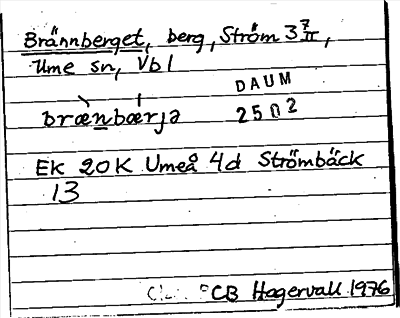 Brännberget, berg, Ström 3 7/II,
Ume sn, Vbl
DAUM
2502
brænbærja
Ek 20K Umeå 4d Strömbäck
13
CB Hagervall 1976